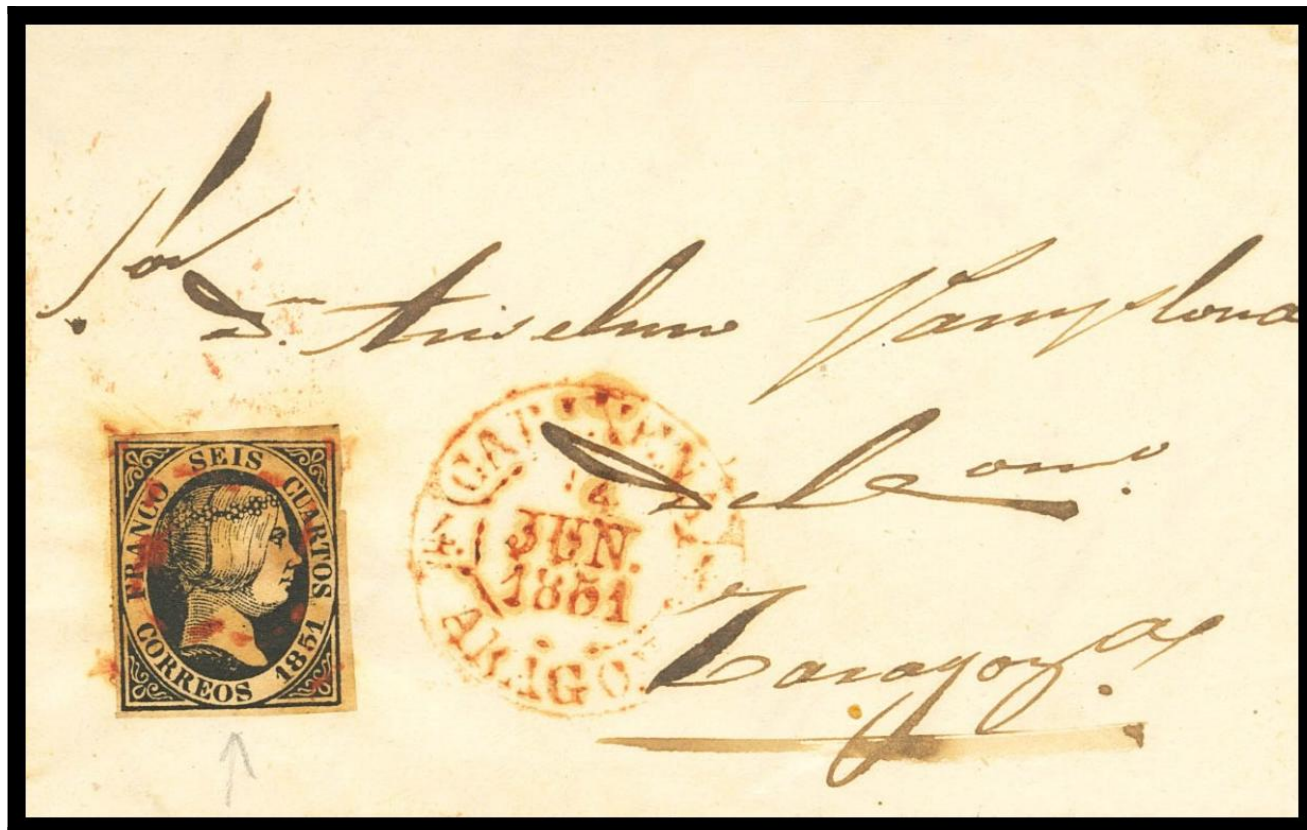 Sor
Dn. Anselmo Pamplona
del Como.
Zaragoza.
FRANCO SEIS CUARTOS
CORREOS 1851
JUN.
1851
ARAGO